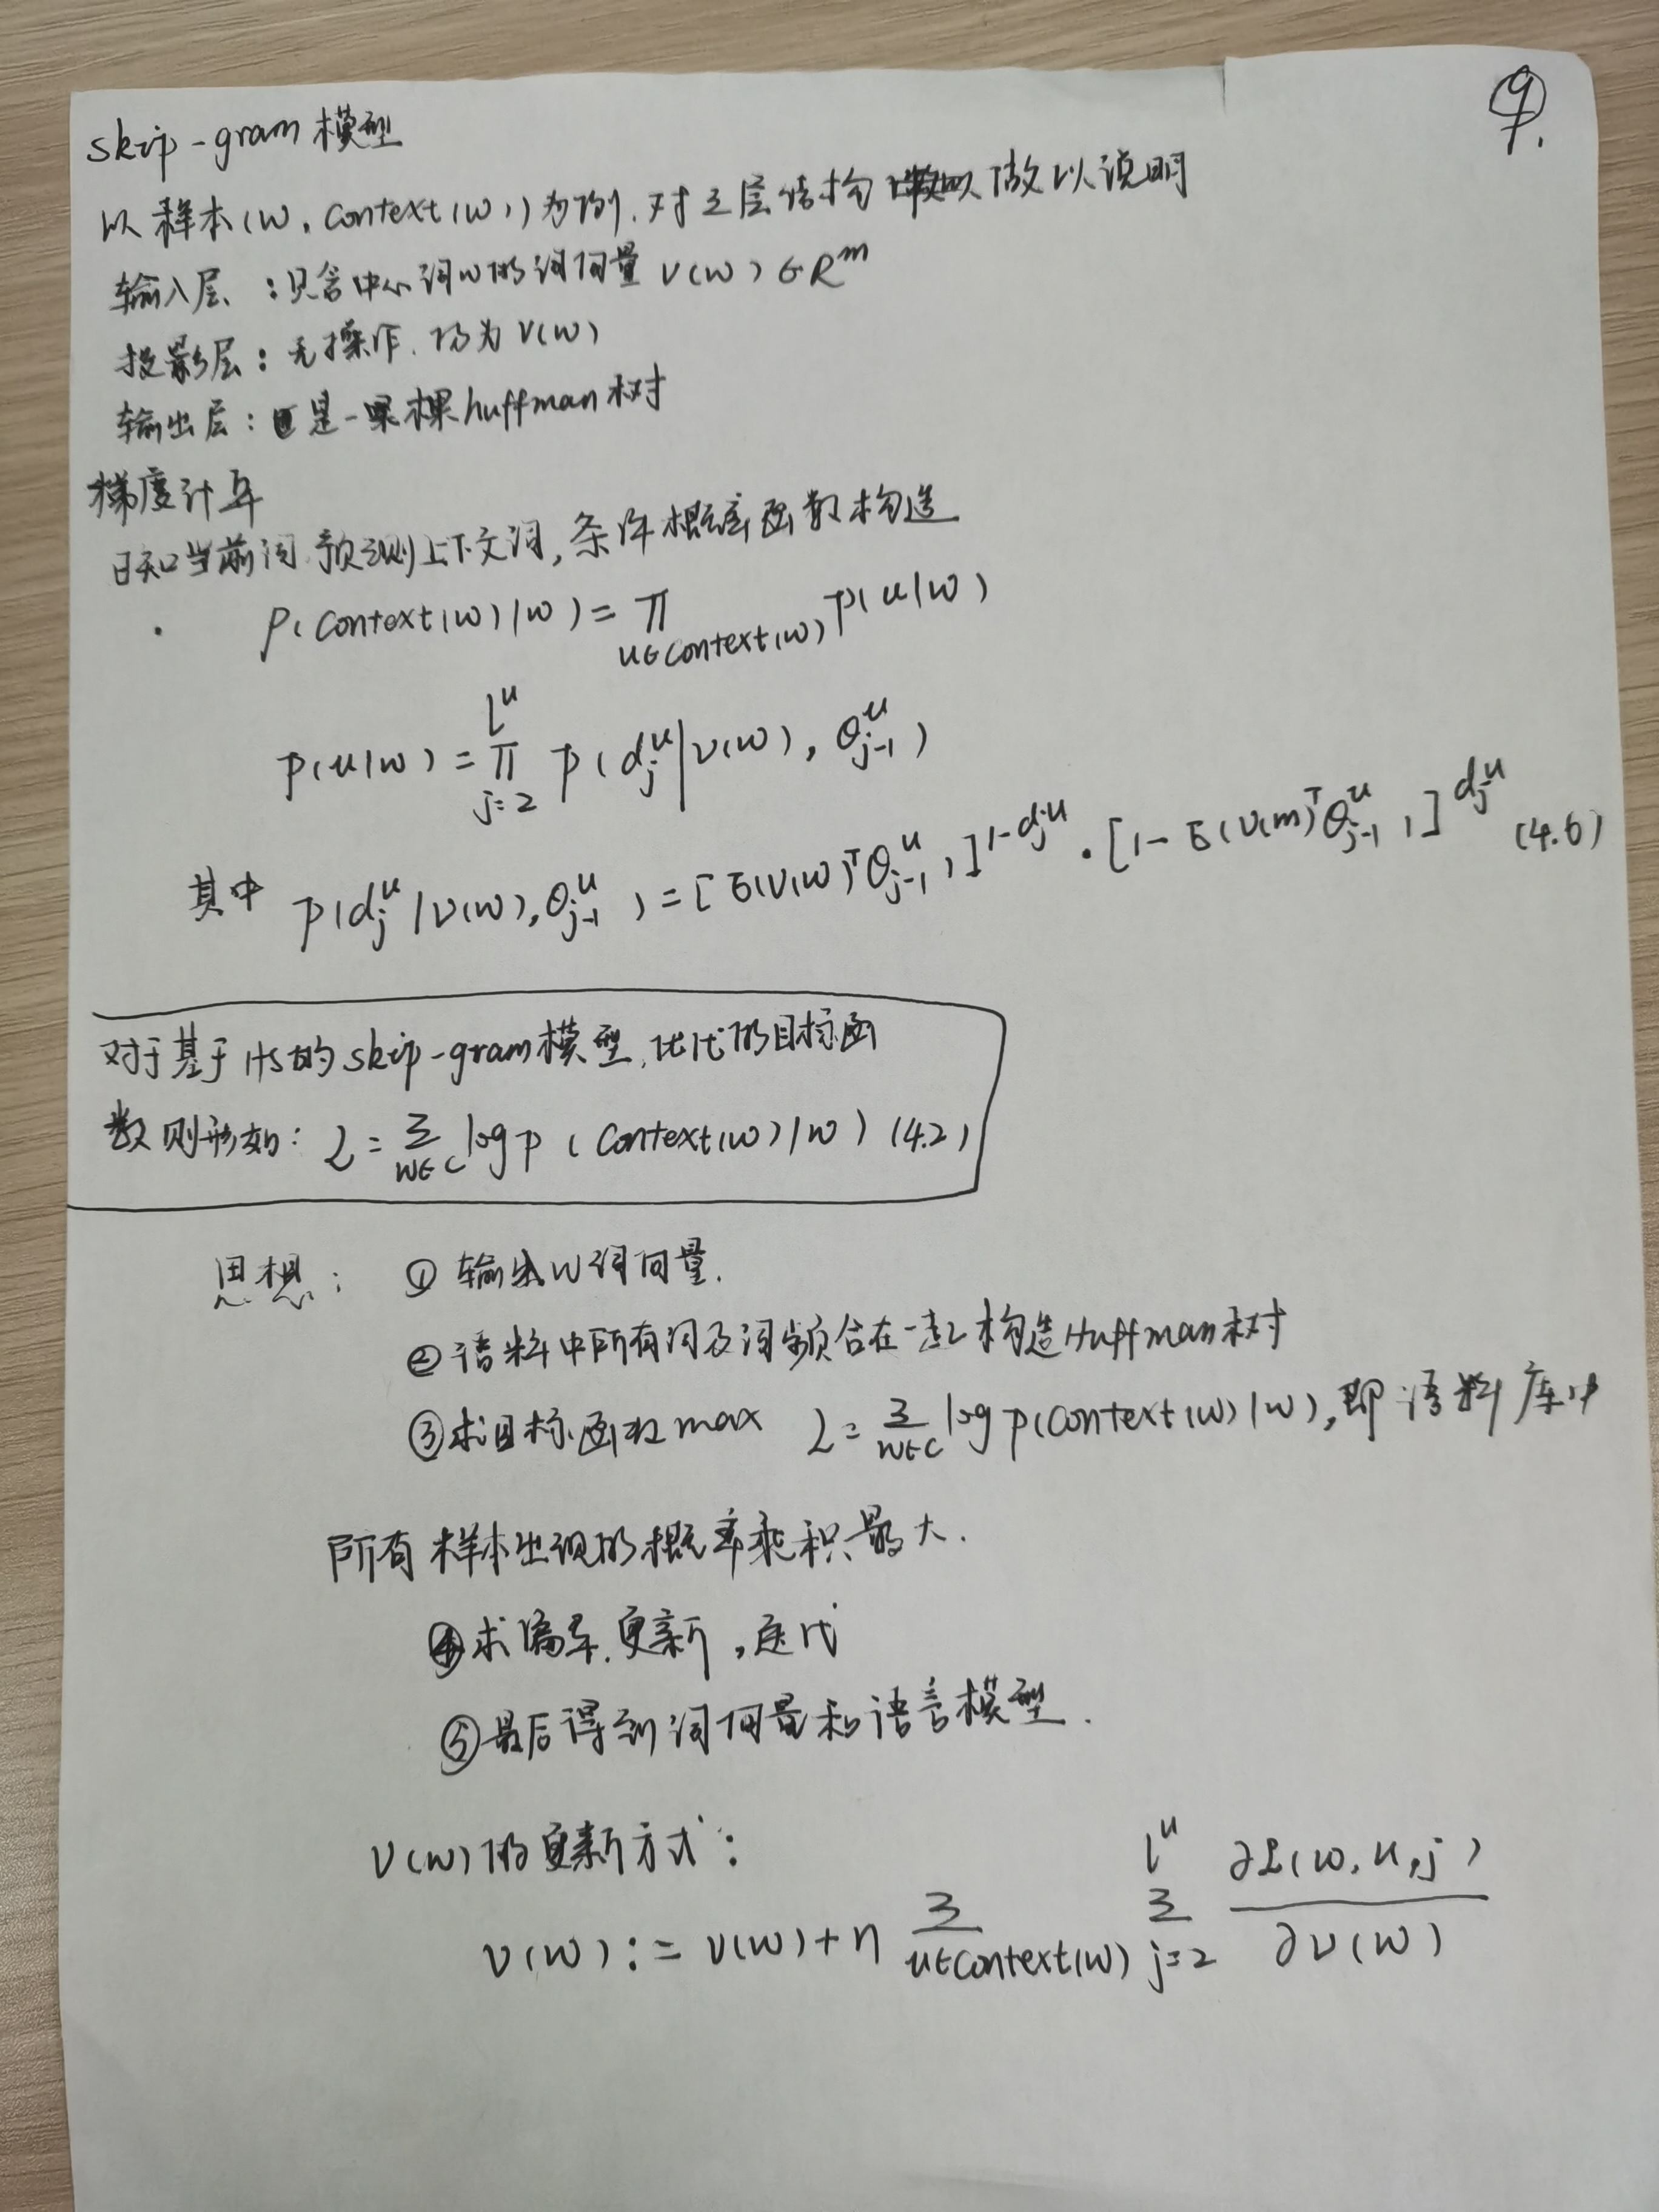 9.
skip-gram 模型
以样本(w, Context(w))为例,对三层结构做以说明
输入层:只含中心词w的词向量 v(w)∈R^m
投影层:无操作,仍为 v(w)
输出层:是一棵huffman树
梯度计算
已知当前词,预测上下文词,条件概率函数构造
p(Context(w)|w) = π_{u∈Context(w)} p(u|w)
p(u|w) = π_{j=2}^{l^u} p(d_j^u | v(w), θ_{j-1}^u)
其中 p(d_j^u | v(w), θ_{j-1}^u) = [σ(v(w)^T θ_{j-1}^u)]^{1-d_j^u} · [1-σ(v(m)^T θ_{j-1}^u)]^{d_j^u} (4.6)
对于基于HS的skip-gram模型,优化的目标函
数则形如: L = Σ_{w∈C} log p (Context(w)|w) (4.2)
思想: ① 输出w词向量.
② 语料中所有词及词频合在一起构造Huffman树
③ 求目标函数 max L = Σ_{w∈C} log p(Context(w)|w),即语料库中
所有样本出现的概率乘积最大.
④ 求偏导.更新,迭代
⑤ 最后得到词向量和语言模型.
v(w)的更新方式:
v(w) := v(w) + η Σ_{u∈Context(w)} Σ_{j=2}^{l^u} ∂L(w,u,j) / ∂v(w)